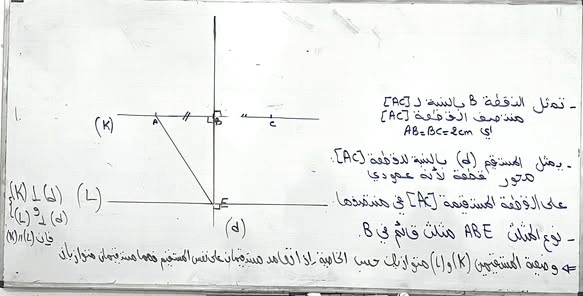 - تمثل النقطة B بالنسبة لـ [AC]
منتصف القطعة [AC]
أي AB=BC=2cm
- يمثل المستقيم (d) بالنسبة للقطعة [AC]:
محور قطعة لأنه عمودي
على القطعة المستقيمة [AC] في منتصفها
- نوع المثلث ABE مثلث قائم في B
⇐ وضعية المستقيمين (K) و (L) متوازيان حسب الخاصية إذا تعامد مستقيمان على نفس المستقيم فهما مستقيمان متوازيان
(K)
A
B
C
(L)
E
(d)
(K) ⊥ (d)
و
(L) ⊥ (d)
فإن (K) // (L)